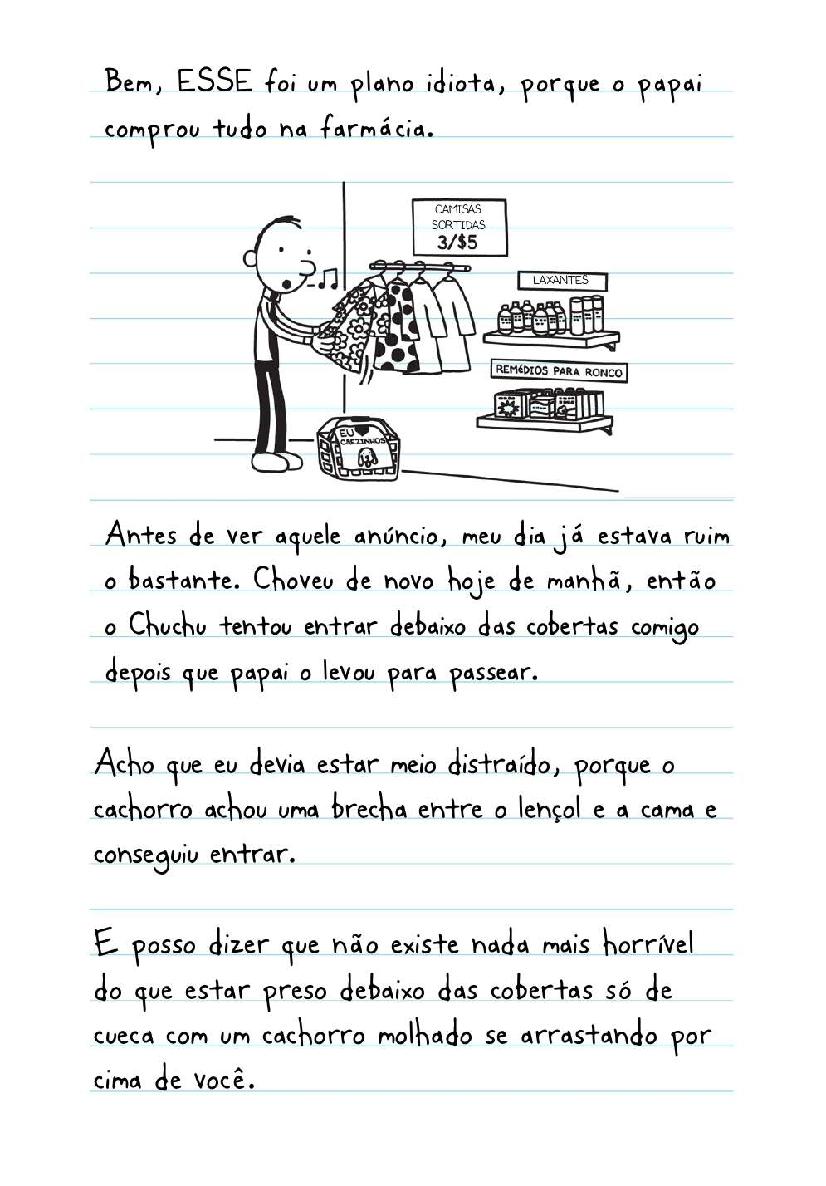 Bem, ESSE foi um plano idiota, porque o papai
comprou tudo na farmácia.
CAMISAS
SORTIDAS
3/$5
LAXANTES
REMÉDIOS PARA RONCO
EU
CÃEZINHOS
Antes de ver aquele anúncio, meu dia já estava ruim
o bastante. Choveu de novo hoje de manhã, então
o Chuchu tentou entrar debaixo das cobertas comigo
depois que papai o levou para passear.
Acho que eu devia estar meio distraído, porque o
cachorro achou uma brecha entre o lençol e a cama e
conseguiu entrar.
E posso dizer que não existe nada mais horrível
do que estar preso debaixo das cobertas só de
cueca com um cachorro molhado se arrastando por
cima de você.